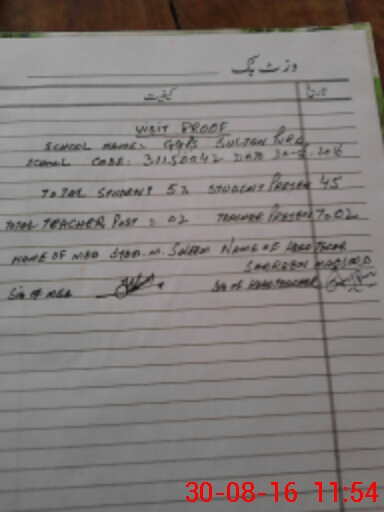 وزٹ بک
کیفیت
VISIT PROOF
SCHOOL NAME: GGPS SULTAN PURA
SCHOOL CODE: 31150042 DATE 30-8-2016
TOTAL STUDENT 52 STUDENT PRESENT 45
TOTAL TEACHER POST : 02 TEACHER PRESENT 02
NAME OF MEA SYED. M. SALEEM NAME OF HEAD TEACHER
MAQSOOD
SIG OF MEA SIG OF HEAD TEACHER
30-08-16 11:54